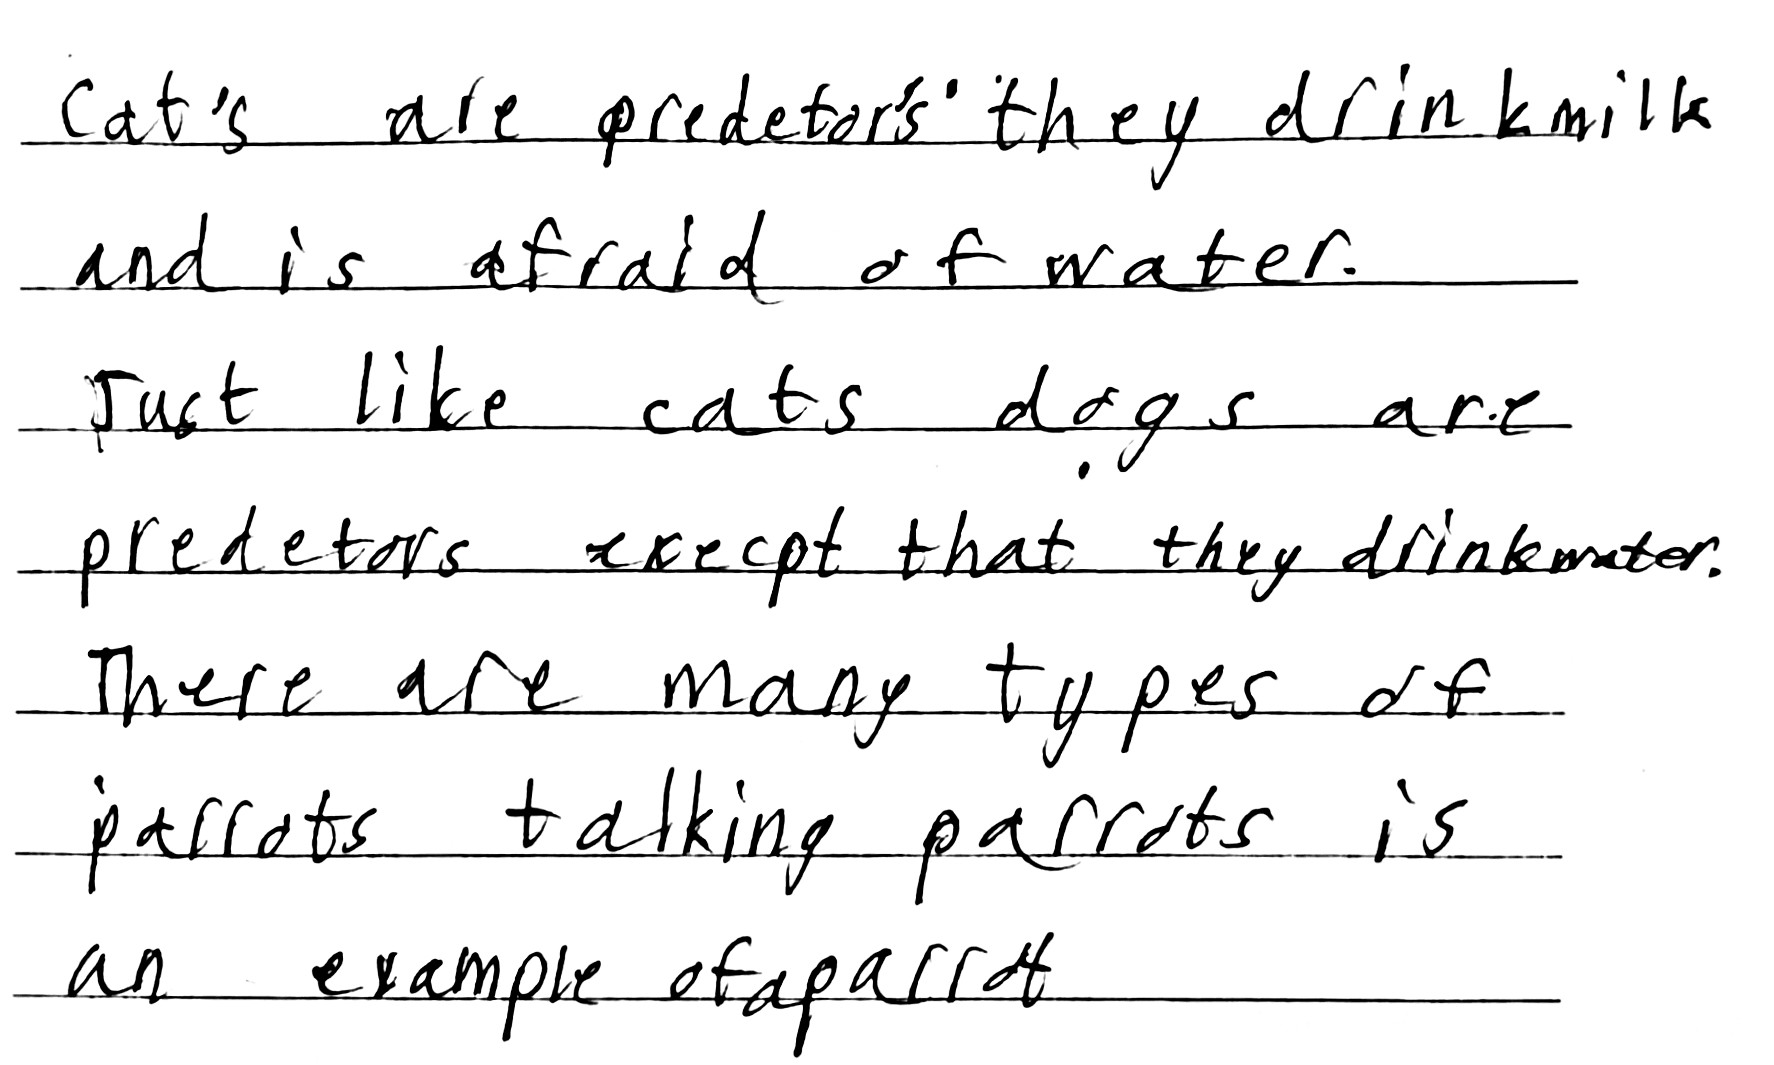 Cat's are predetor's they drink milk
and is afraid of water.
Just like cats dogs are
predetors execpt that they drink water.
There are many types of
parrots talking parrots is
an example of a parrot